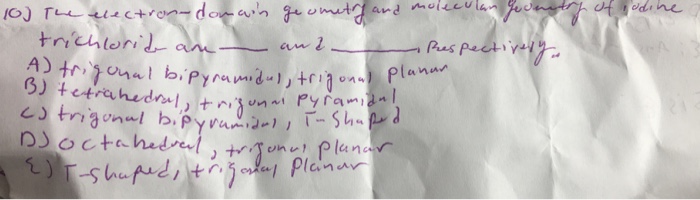 10) The electron-domain geometry and molecular geometry of iodine
trichloride are ___ and ___, Respectively.
A) trigonal bipyramidal, trigonal planar
B) tetrahedral, trigonal pyramidal
C) trigonal bipyramidal, T-Shaped
D) octahedral, trigonal planar
E) T-shaped, trigonal planar